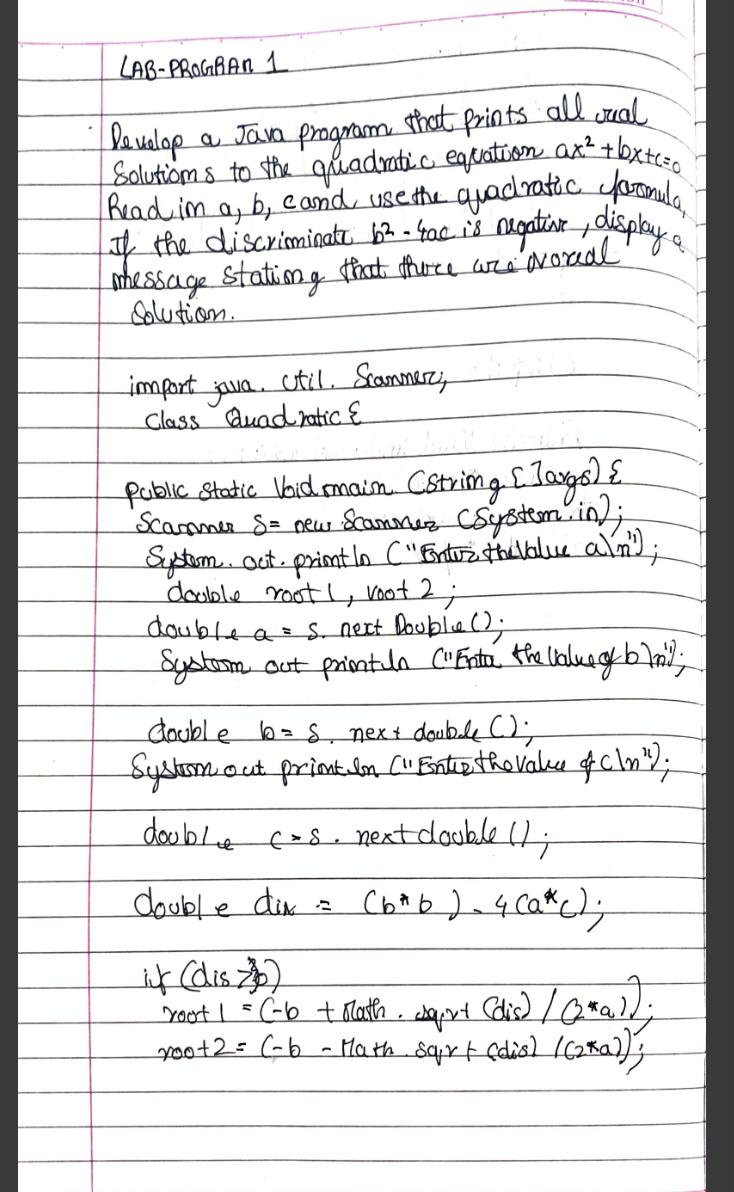 LAB-PROGRAM 1
Develop a Java program that prints all real
Solutions to the quadratic equation ax² + bx+c=0
Read in a, b, c and use the quadratic formula,
If the discriminate b² - 4ac is negative, display a
message stating that there are no real
Solution.
import java. util. Scanner;
Class Quadratic {
public static Void main (String [] args) {
Scanner S= new Scanner (System.in);
System. out. println ("Enter the Value a\n");
double root1, root 2;
double a = s. next Double();
System out println ("Enter the Value of b \n");
double b= s. next double ();
System out println ("Enter the Value of c\n");
double c = s. next double ();
double dis = (b*b) - 4(a*c);
if (dis
root1 = (-b + Math. sqrt (dis) / (2*a));
root2= (-b - Math. sqrt (dis) /(2*a));